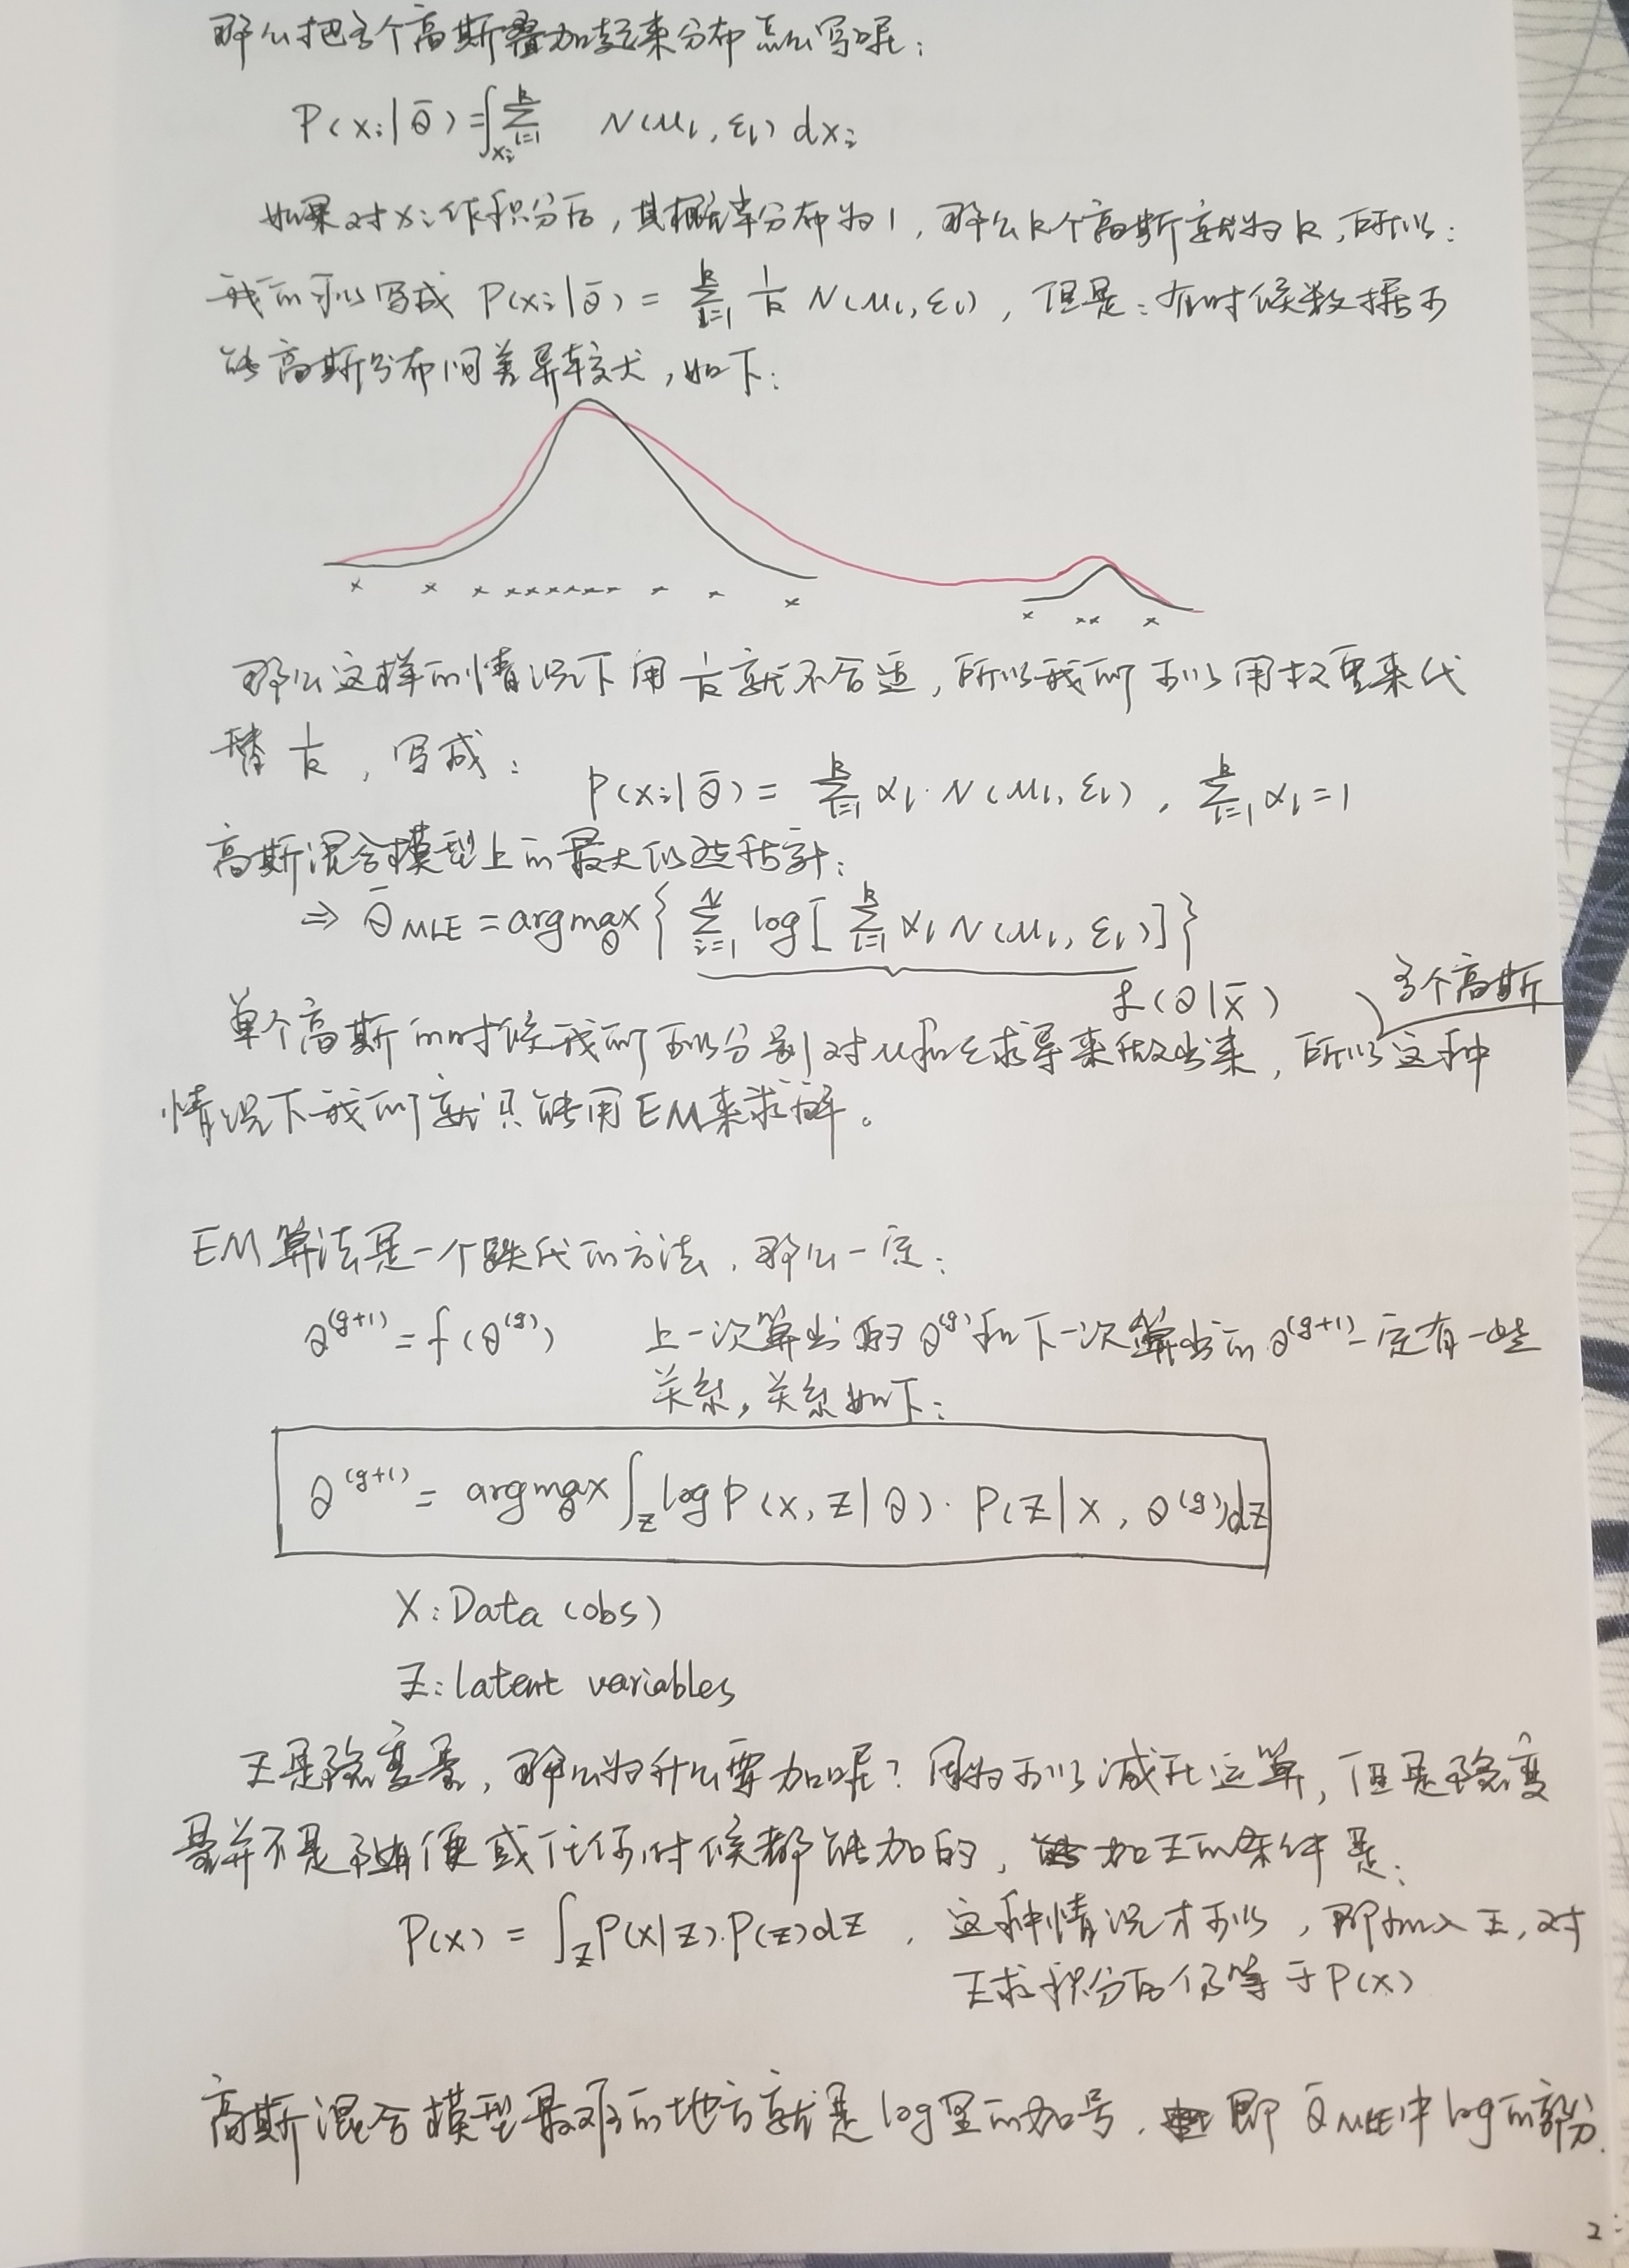 那么把多个高斯叠加起来分布怎么写呢:
P(xᵢ|θ̄) = ∫_{xᵢ} Σ_{l=1}^{k} N(μₗ, εₗ) dxᵢ
如果对xᵢ作积分后,其概率分布为1,那么k个高斯就为k,所以:
我们可以写成 P(xᵢ|θ̄) = Σ_{l=1}^{k} 1/k N(μₗ, εₗ), 但是:有时候数据可
能高斯分布间差异较大,如下:
那么这样的情况下用 1/k 就不合适,所以我们可以用权重来代
替 1/k, 写成:
P(xᵢ|θ̄) = Σ_{l=1}^{k} αₗ · N(μₗ, εₗ), Σ_{l=1}^{k} αₗ = 1
高斯混合模型上的最大似然估计:
⇒ θ̄_MLE = argmax_θ { Σ_{i=1}^{N} log[ Σ_{l=1}^{k} αₗ N(μₗ, εₗ)] }
ℒ(θ|x̄)
多个高斯
单个高斯的时候我们可以分别对μ和ε求导来做出来,所以这种
情况下我们就只能用EM来求解。
EM算法是一个跌代的方法,那么一定:
θ^(g+1) = f(θ^(g)) 上一次算出的θ^(g)和下一次算出的θ^(g+1)一定有一些
关系,关系如下:
θ^(g+1) = argmax_θ ∫_z log P(x, z|θ) · P(z|x, θ^(g)) dz
X: Data (obs)
Z: latent variables
Z是隐变量,那么为什么要加呢?因为可以减化运算,但是隐变
量并不是随便或任何时候都能加的,能加Z的条件是:
P(x) = ∫_z P(x|z).P(z)dz, 这种情况才可以,即加入Z,对
Z求积分后仍等于P(x)
高斯混合模型最难的地方就是log里的加号,即θ̄_MLE中log的部分.
2